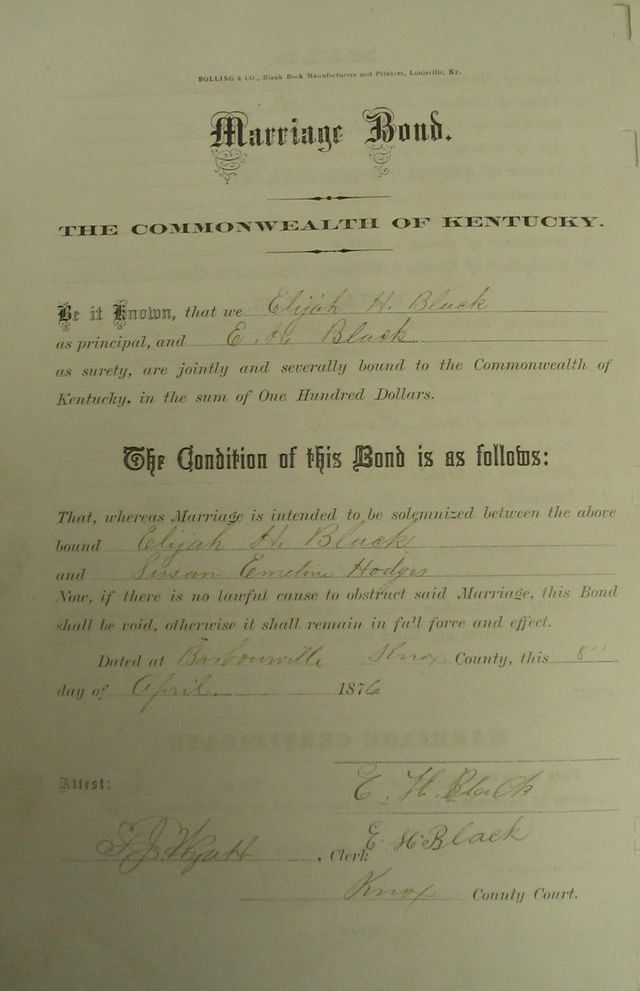 BOLLING & CO., Blank Book Manufacturers and Printers, Louisville, Ky.
Marriage Bond.
THE COMMONWEALTH OF KENTUCKY.
Be it Known, that we Elijah H. Black
as principal, and E. H. Black
as surety, are jointly and severally bound to the Commonwealth of
Kentucky, in the sum of One Hundred Dollars.
The Condition of this Bond is as follows:
That, whereas Marriage is intended to be solemnized between the above
bound Elijah H. Black
and Susan Emeline Hodges
Now, if there is no lawful cause to obstruct said Marriage, this Bond
shall be void, otherwise it shall remain in full force and effect.
Dated at Barbourville Knox County, this 8"
day of April 1876
Attest:
E. H. Black
E H Black
T. J. Wyatt, Clerk
Knox County Court.